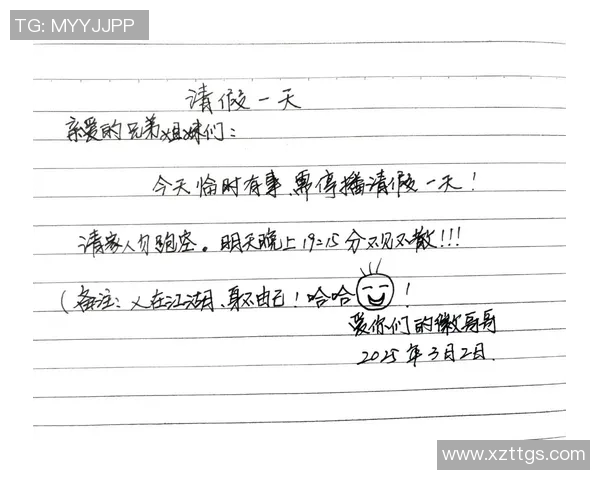 TG: MYYJJPP
请假一天
亲爱的兄弟姐妹们:
今天临时有事,需停播请假一天!
请家人勿跑空。明天晚上19:15分不见不散!!!
(备注:人在江湖,身不由己!哈哈!
爱你们的徽哥哥
2025年3月2日.
www.xzttgs.com